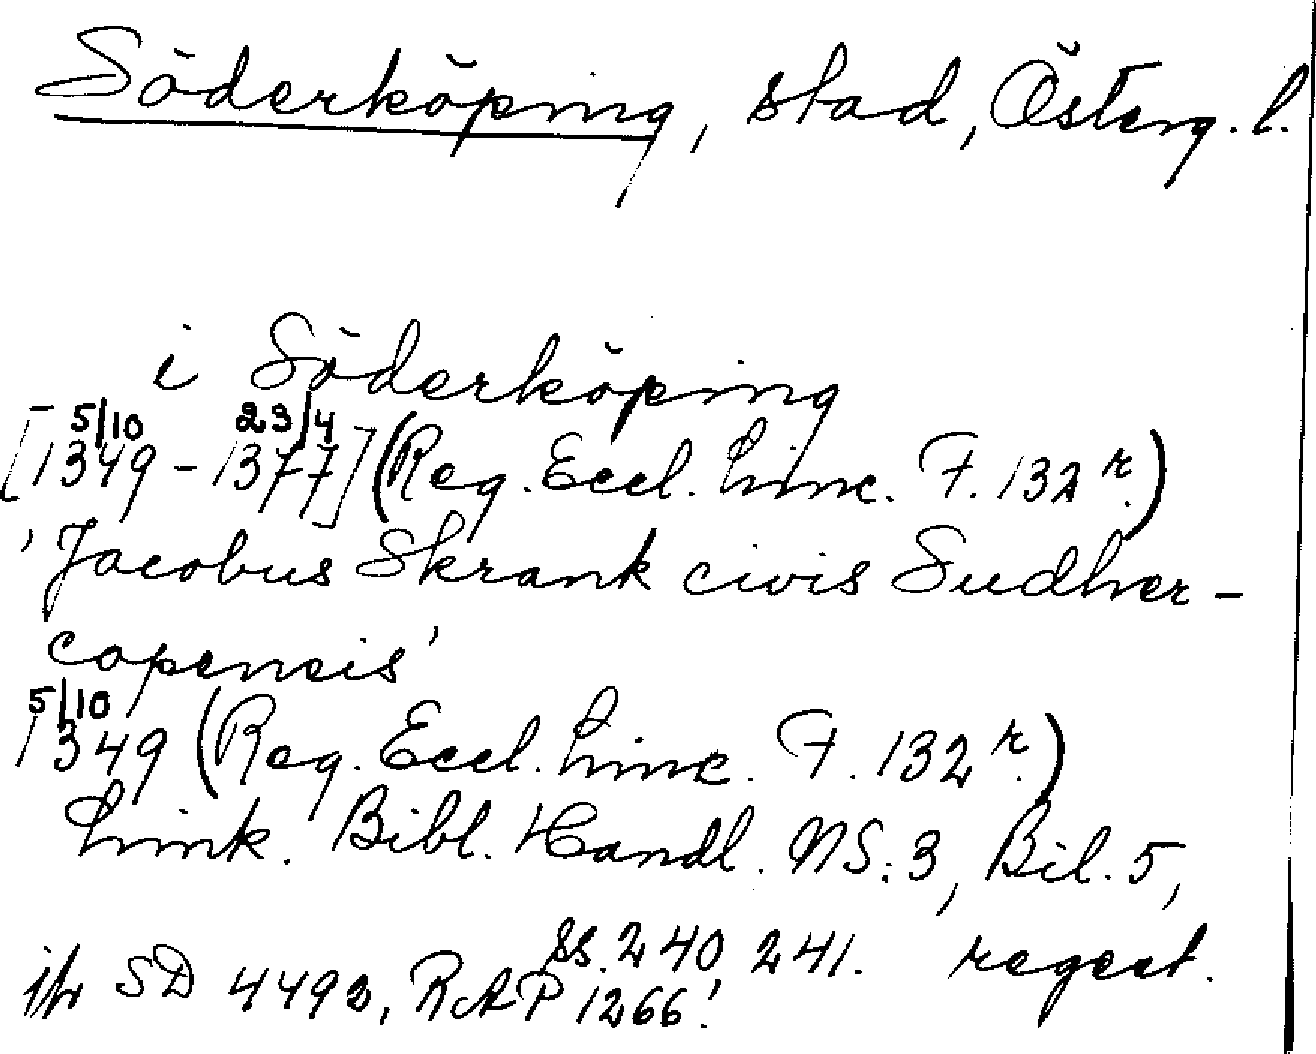 Söderköping, stad, Österg. l.
i Söderköping
5/10 23/4
[1349 - 1377] (Reg. Eccl. Linc. F. 132 r.)
'Jacobus Skrank civis Sudher-
copensis'
5/10
1349 (Reg. Eccl. Linc. F. 132 r.)
Link. Bibl. Handl. NS: 3, Bil. 5,
ss. 240, 241. regest.
jfr SD 4492, RAP 1266!